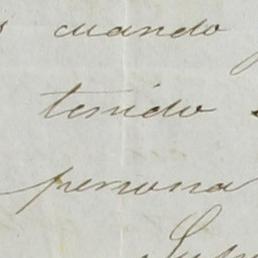 cuando
tenido
persona